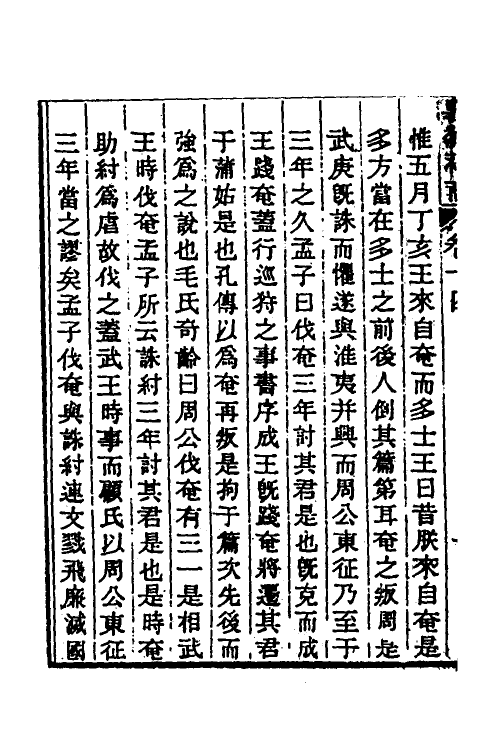 卷十四
惟五月丁亥王來自奄而多士王曰昔朕來自奄是
多方當在多士之前後人倒其篇第耳奄之叛周是
武庚旣誅而懼遂與淮夷并興而周公東征乃至于
三年之久孟子曰伐奄三年討其君是也旣克而成
王踐奄蓋行巡狩之事書序成王旣踐奄將遷其君
于蒲姑是也孔傳以爲奄再叛是拘于篇次先後而
強爲之說也毛氏奇齡曰周公伐奄有三一是相武
王時伐奄孟子所云誅紂三年討其君是也是時奄
助紂爲虐故伐之蓋武王時事而顧氏以周公東征
三年當之謬矣孟子伐奄與誅紂連文戮飛廉滅國